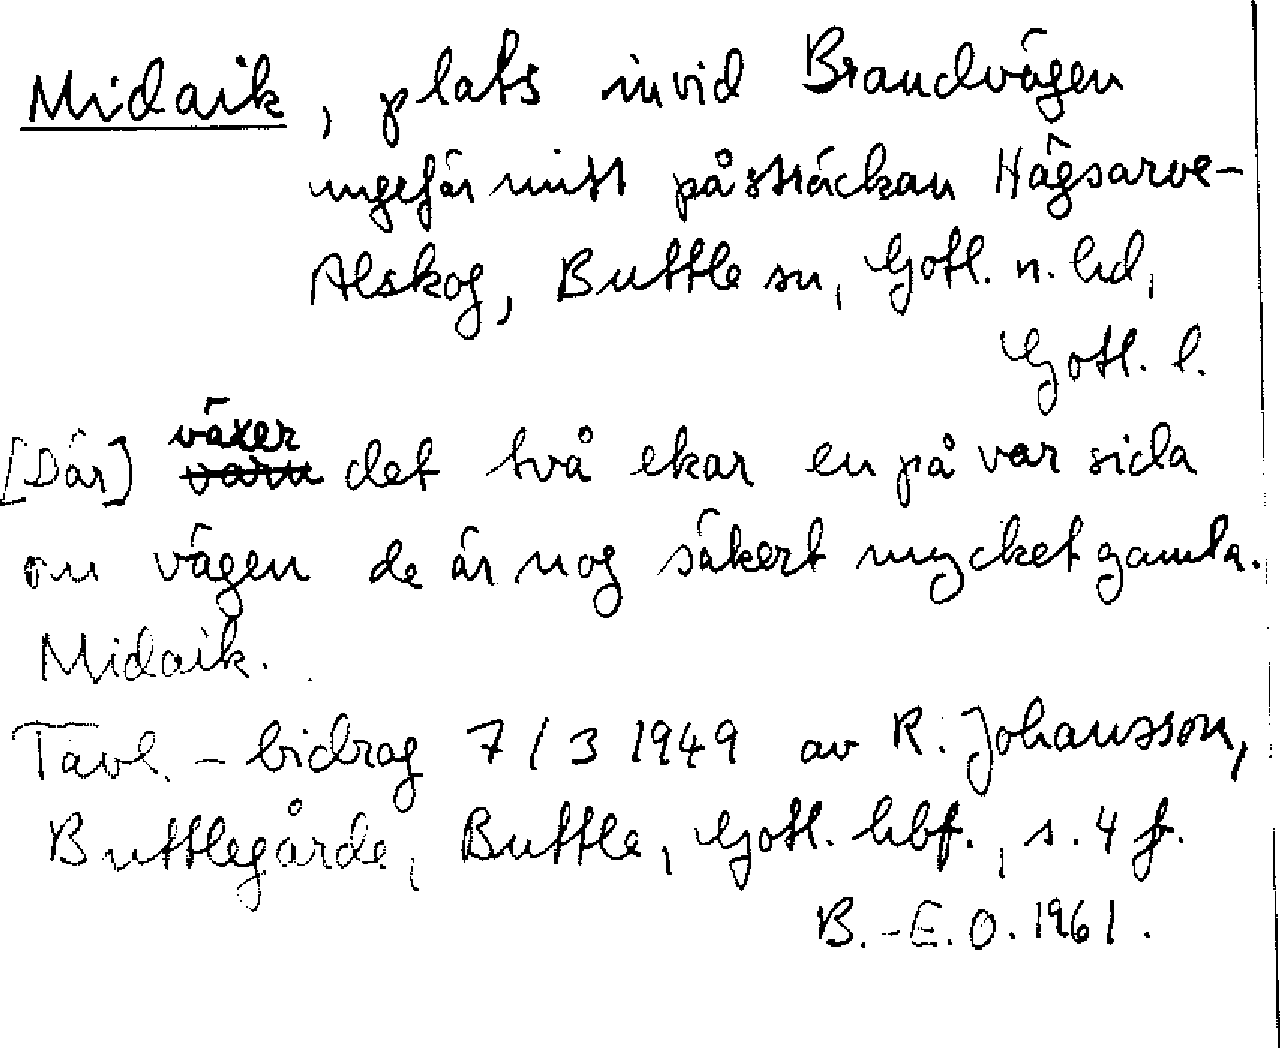 Midaik, plats invid Brandvägen
ungefär mitt på sträckan Hägsarve-
Alskog, Buttle sn, Gotl. n. hd,
Gotl. l.
[Där] växer det två ekar en på var sida
om vägen de är nog säkert mycket gamla.
Midaik.
Tävl.-bidrag 7/3 1949 av R. Johansson,
Buttlegårde, Buttle, Gotl. hbf., s. 4 f.
B.-E. O. 1961.